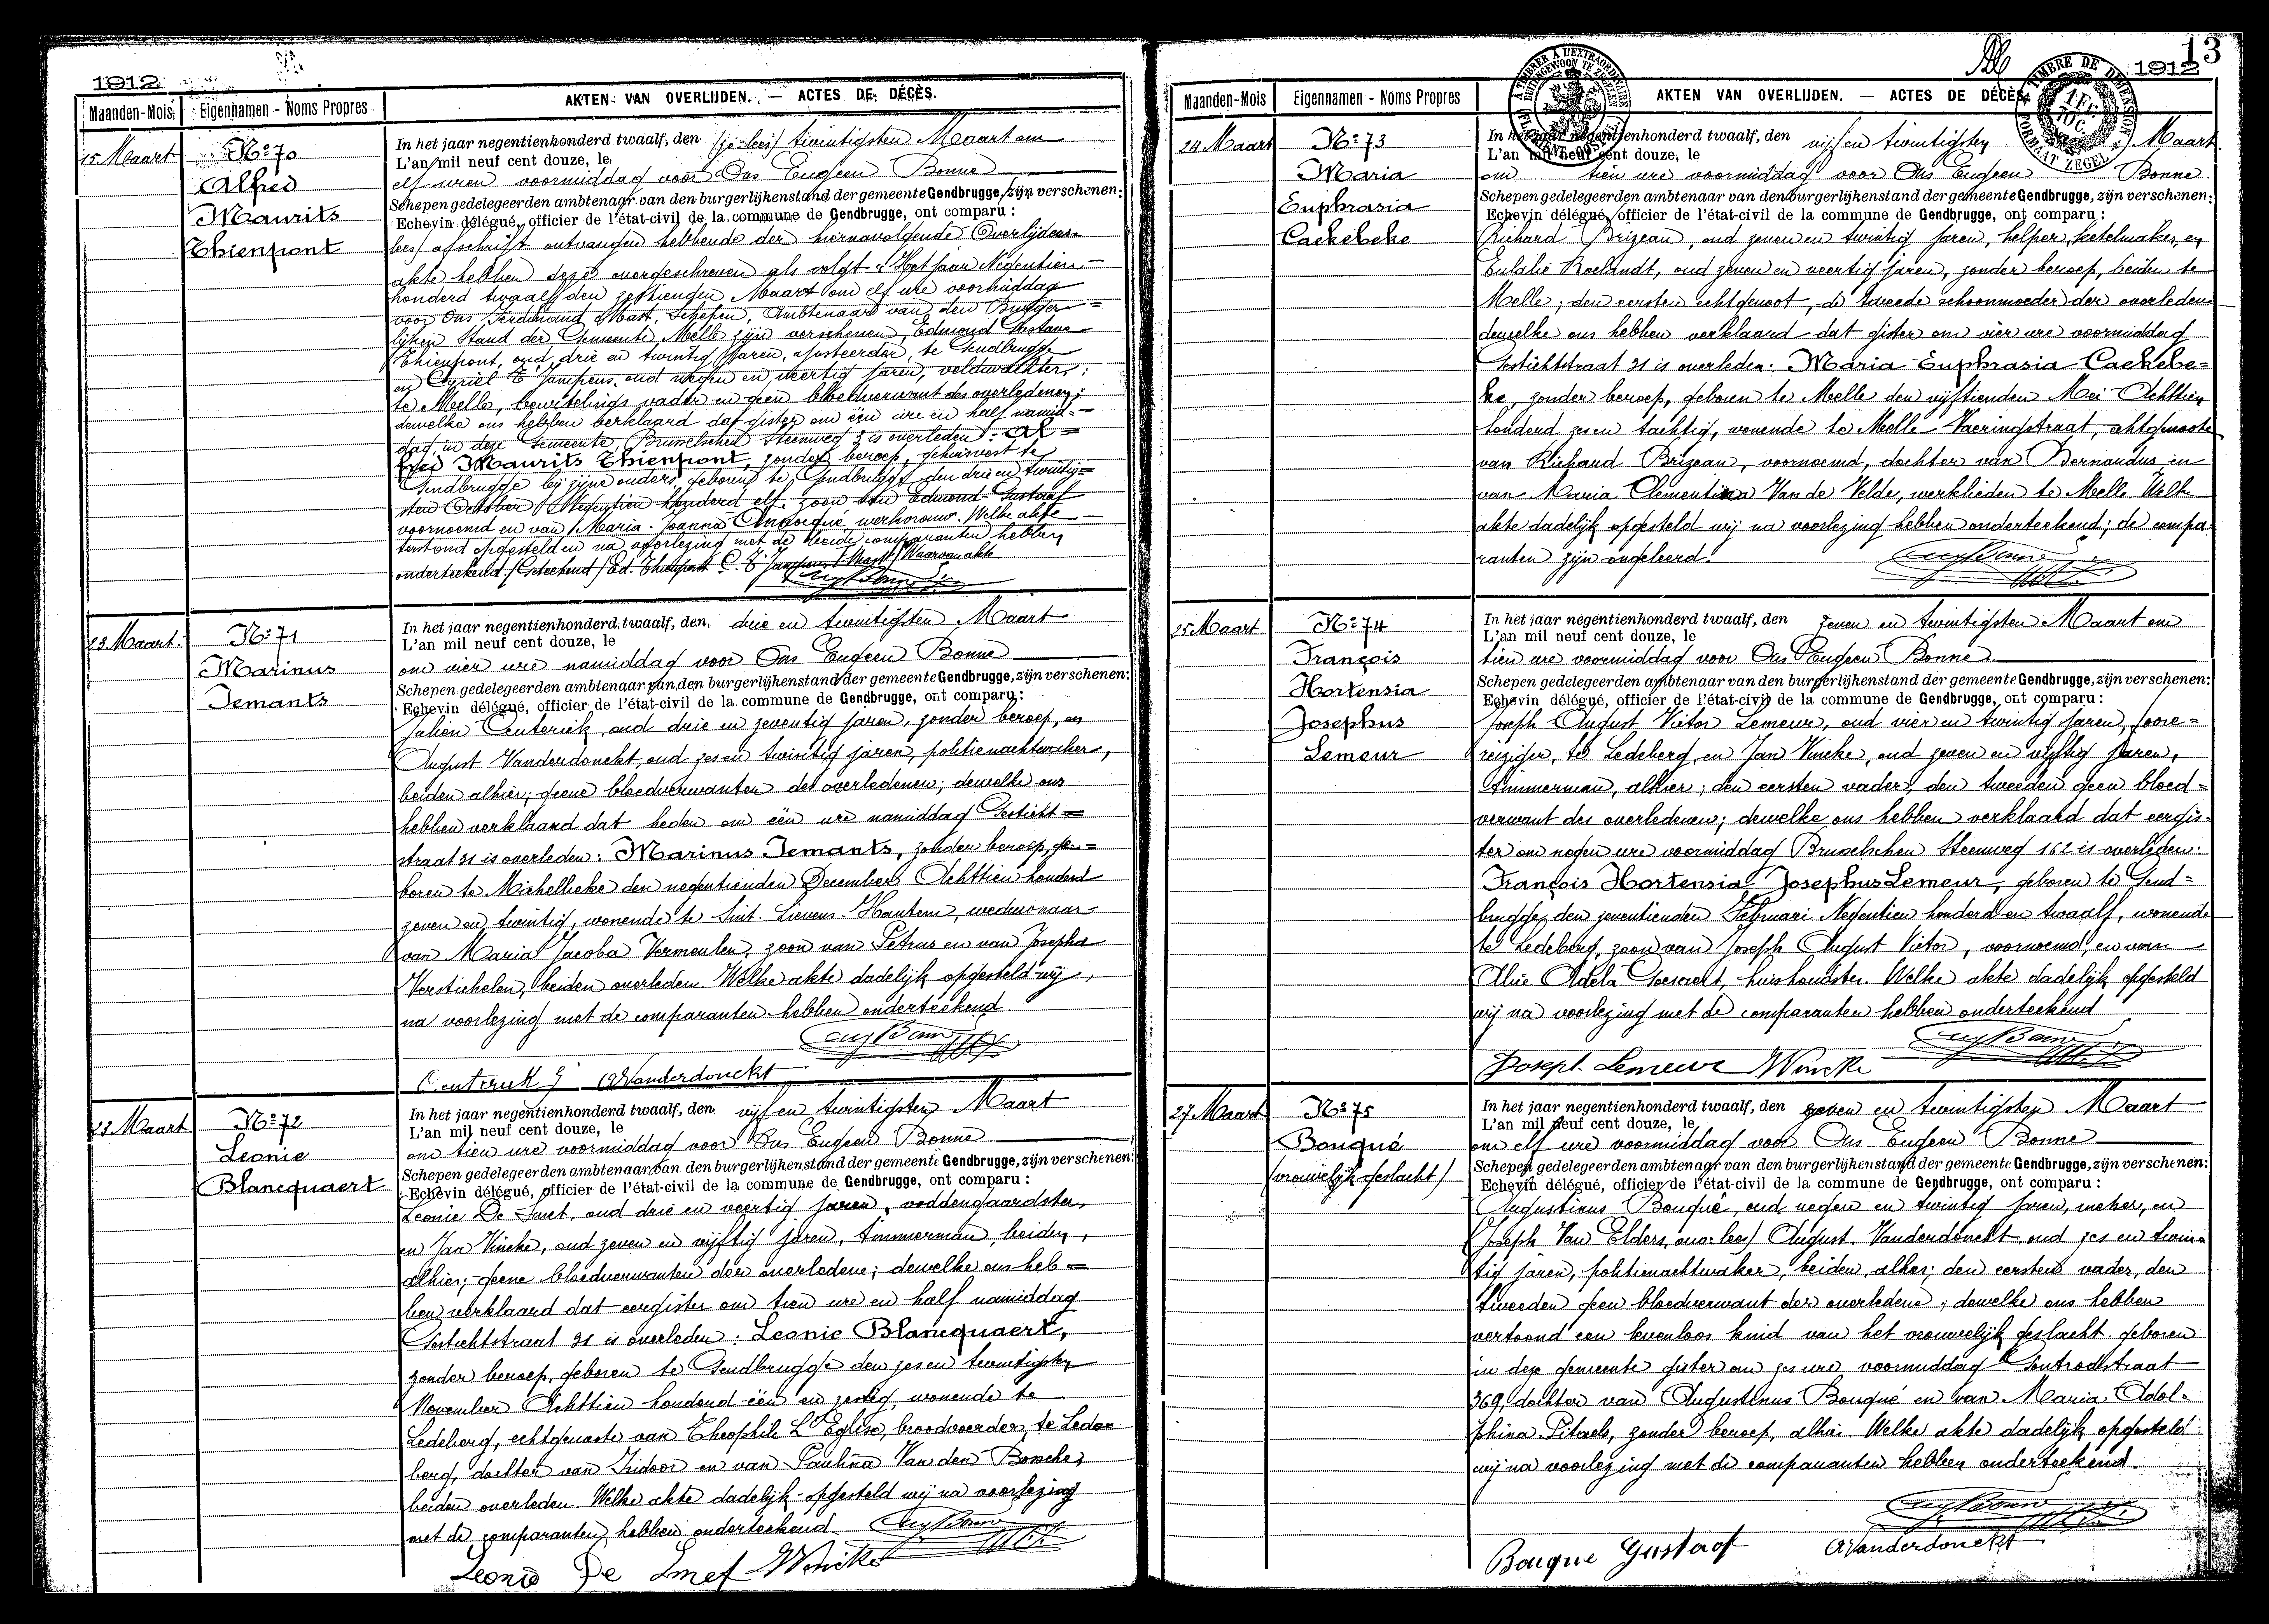 1912
Maanden-Mois Eigennamen - Noms Propres AKTEN VAN OVERLIJDEN. — ACTES DE DÉCÈS.
15 Maart
No 70
Alfred
Maurits
Thienpont
In het jaar negentienhonderd twaalf, den twintigsten Maart om
L'an mil neuf cent douze, le
elf uren voormiddag voor Ons Eugeen Bonne
Schepen gedelegeerden ambtenaar van den burgerlijkenstand der gemeente Gendbrugge, zijn verschenen:
Echevin délégué, officier de l'état-civil de la commune de Gendbrugge, ont comparu :
lees/ afschrift ontvangen hebbende der hiernavolgende Overlijdens-
akte hebben deze overgeschreven als volgt: "Het jaar Negentien-
honderd twaalf den zestienden Maart om elf ure voormiddag
voor Ons, Ferdinand Mast, Schepen, Ambtenaar van den Burger=
lijken Stand der Gemeente Melle zijn verschenen, Edmond Gustave
Thienpont, oud drie en twintig jaren, te Gendbrugge
en Cyriel T'Jampens, oud negen en veertig jaren, veldwachter;
te Melle, bewistelings vader en geen bloedverwant des overledenen;
dewelke ons hebben verklaard dat gister om één ure en half namid=
dag, in deze Gemeente, Brusselschen Steenweg is overleden: Al=
fred Maurits Thienpont, zonder beroep, gehuisvest te
Gendbrugge bij zijne ouders, geboren te Gendbrugge den drie en twintig=
sten October Negentien honderd elf, zoon van Edmond Gustaaf
voornoemd en van Maria Joanna werkvrouw. Welke akte
terstond opgesteld en na voorlezing met de beide comparanten hebben
onderteekend. /Geteekend/ Ed. Thienpont C. T'Jampens F. Mast/ Waarvan akte
23 Maart.
No 71
Marinus
Temants
In het jaar negentienhonderd twaalf, den drie en twintigsten Maart
L'an mil neuf cent douze, le
om vier ure namiddag voor Ons Eugeen Bonne
Schepen gedelegeerden ambtenaar van den burgerlijkenstand der gemeente Gendbrugge, zijn verschenen:
Echevin délégué, officier de l'état-civil de la commune de Gendbrugge, ont comparu :
Julien Centerick, oud drie en zeventig jaren, zonder beroep, en
August Vanderdonckt, oud zes en twintig jaren, politienachtwaker,
beiden alhier; geene bloedverwanten des overledenen; dewelke ons
hebben verklaard dat heden om één ure namiddag Gesticht=
straat 31 is overleden: Marinus Temants, zonder beroep, ge=
boren te Michelbeke den negentienden December Achttien honderd
zeven en twintig, wonende te Sint. Lievens-Houtem, weduwnaar
van Maria Jacoba Vermeulen, zoon van Petrus en van Josepha
Verstichelen, beiden overleden. Welke akte dadelijk opgesteld wij
na voorlezing met de comparanten hebben onderteekend.
Centerick J AVanderdonckt
23 Maart
No 72
Leonie
Blancquaert
In het jaar negentienhonderd twaalf, den vijf en twintigsten Maart
L'an mil neuf cent douze, le
om tien ure voormiddag voor Ons Eugeen Bonne
Schepen gedelegeerden ambtenaar van den burgerlijkenstand der gemeente Gendbrugge, zijn verschenen:
Echevin délégué, officier de l'état-civil de la commune de Gendbrugge, ont comparu :
Leonie De Smet, oud drie en veertig jaren, voddengaardster,
en Jan Vincke, oud zeven en vijftig jaren, timmerman, beiden,
alhier; geene bloedverwanten der overledene; dewelke ons heb=
ben verklaard dat eergister om tien ure en half namiddag
Gestichtstraat 31 is overleden: Leonie Blancquaert,
zonder beroep, geboren te Gendbrugge den zes en twintigsten
November Achttien honderd één en zestig, wonende te
Ledeberg, echtgenoote van Theophile L'Eglise, broodvoerder, te Lede
berg, dochter van Isidoor en van Paulina Van den Bossche,
beiden overleden. Welke akte dadelijk opgesteld wij na voorlezing
met de comparanten hebben onderteekend
Leonie De Smet JVincke
13
1912
Maanden-Mois Eigennamen - Noms Propres AKTEN VAN OVERLIJDEN. — ACTES DE DÉCÈS.
24 Maart
No 73
Maria
Euphrasia
Caekebeke
In het jaar negentienhonderd twaalf, den vijf en twintigsten Maart
L'an mil neuf cent douze, le
om tien ure voormiddag voor Ons Eugeen Bonne
Schepen gedelegeerden ambtenaar van den burgerlijkenstand der gemeente Gendbrugge, zijn verschenen:
Echevin délégué, officier de l'état-civil de la commune de Gendbrugge, ont comparu :
Richard Brizeau, oud zeven en twintig jaren, helper, ketelmaker, en
Eulalie Roelandt, oud zeven en veertig jaren, zonder beroep, beiden te
Melle; den eersten echtgenoot, de tweede schoonmoeder der overledene
dewelke ons hebben verklaard dat gister om vier ure voormiddag
Gestichtstraat 31 is overleden: Maria Euphrasia Caekebe=
ke, zonder beroep, geboren te Melle den vijftienden Mei Achttien
honderd zes en tachtig, wonende te Melle Vaeringstraat, echtgenoote
van Richard Brizeau, voornoemd, dochter van Bernardus en
van Maria Clementina Van de Velde, werklieden te Melle. Welke
akte dadelijk opgesteld wij na voorlezing hebben onderteekend; de compa
ranten zijn ongeleerd.
25 Maart
No 74
François
Hortensia
Josephus
Lemeur
In het jaar negentienhonderd twaalf, den zeven en twintigsten Maart om
L'an mil neuf cent douze, le
tien ure voormiddag voor Ons Eugeen Bonne
Schepen gedelegeerden ambtenaar van den burgerlijkenstand der gemeente Gendbrugge, zijn verschenen:
Echevin délégué, officier de l'état-civil de la commune de Gendbrugge, ont comparu :
Joseph August Victor Lemeur, oud vier en twintig jaren, foore=
reiziger, te Ledeberg, en Jan Vincke, oud zeven en vijftig jaren,
timmerman, alhier; den eersten vader, den tweeden geen bloed=
verwant des overledenen; dewelke ons hebben verklaard dat eergis=
ter om negen ure voormiddag Brusselschen Steenweg 162 is overleden:
François Hortensia Josephus Lemeur, geboren te Gend=
brugge, den zeventienden Februari Negentien honderd en twaalf, wonende
te Ledeberg, zoon van Joseph August Victor, voornoemd, en van
Alice Adela huishoudster. Welke akte dadelijk opgesteld
wij na voorlezing met de comparanten hebben onderteekend
Joseph Lemeur JVincke
27 Maart
No 75
Bouqué
/vrouwelijk geslacht/
In het jaar negentienhonderd twaalf, den zeven en twintigsten Maart
L'an mil neuf cent douze, le
om elf ure voormiddag voor Ons Eugeen Bonne
Schepen gedelegeerden ambtenaar van den burgerlijkenstand der gemeente Gendbrugge, zijn verschenen:
Echevin délégué, officier de l'état-civil de la commune de Gendbrugge, ont comparu :
Augustinus Bouqué, oud negen en twintig jaren, en
Joseph Van Elders, lees/ August Vanderdonckt, oud zes en twin=
tig jaren, politienachtwaker, beiden, alhier; den eersten vader, den
tweeden geen bloedverwant der overledene; dewelke ons hebben
vertoond een levenloos kind van het vrouwelijk geslacht geboren
in deze gemeente gister om zes ure voormiddag Gontrodestraat
369, dochter van Augustinus Bouqué en van Maria Adol=
phina Pitaels, zonder beroep, alhier. Welke akte dadelijk opgesteld
wij na voorlezing met de comparanten hebben onderteekend.
Bouque Gustaaf AVanderdonckt